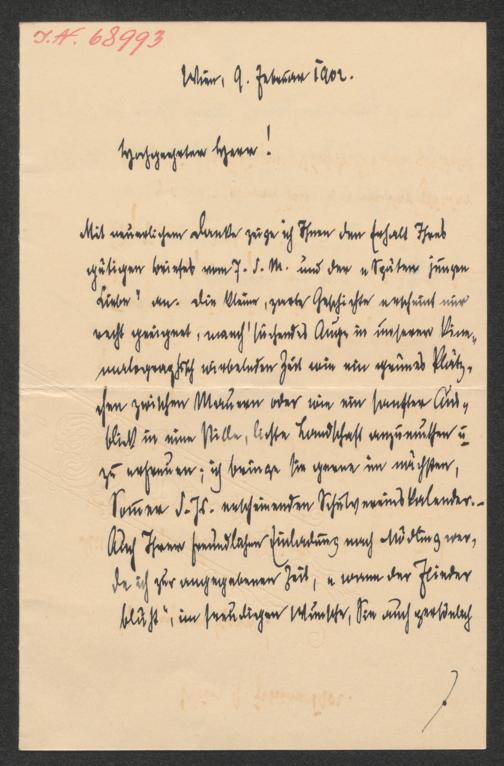 I.N. 68993
Wien, 9. Februar 1902.
Hochgeehrter Herr!
Mit neuerlichem Danke zeige ich Ihnen den Erhalt Ihres
gütigen Briefes vom 7. d. M. und der „Späten jungen
Liebe" an. Die kleine, zarte Geschichte erscheint mir
recht geeignet, manch' suchendes Auge in unserer kine-
matographisch wirbelnden Zeit wie ein grünes Plätz-
chen zwischen Mauern oder wie ein sanfter Aus-
blick in eine stille, lichte Landschaft anzumuthen u
zu erfreuen; ich bringe sie gerne im nächsten,
Sommer d. Js. erscheinenden Schulvereinskalender. –
Auch Ihrer freundlichen Einladung nach Mödling wer-
de ich zur angegebenen Zeit, „wann der Flieder
blüht", im freudigen Wunsche, Sie auch persönlich